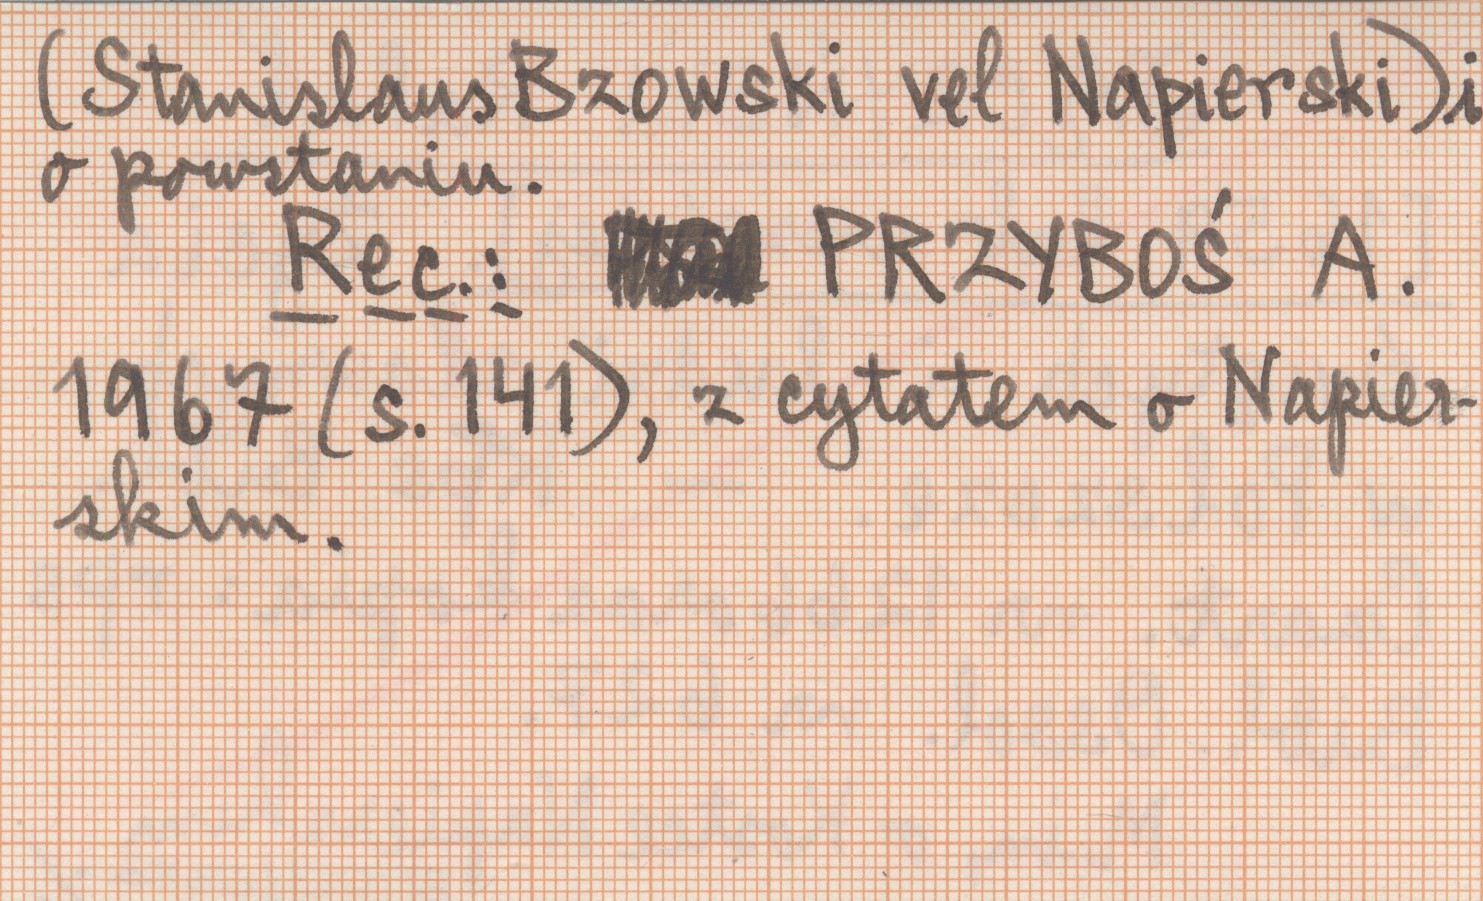 (Stanislaus Bzowski vel Napierski) i
o powstaniu.
Rec.: PRZYBOŚ A.
1967 (s. 141), z cytatem o Napier-
skim.